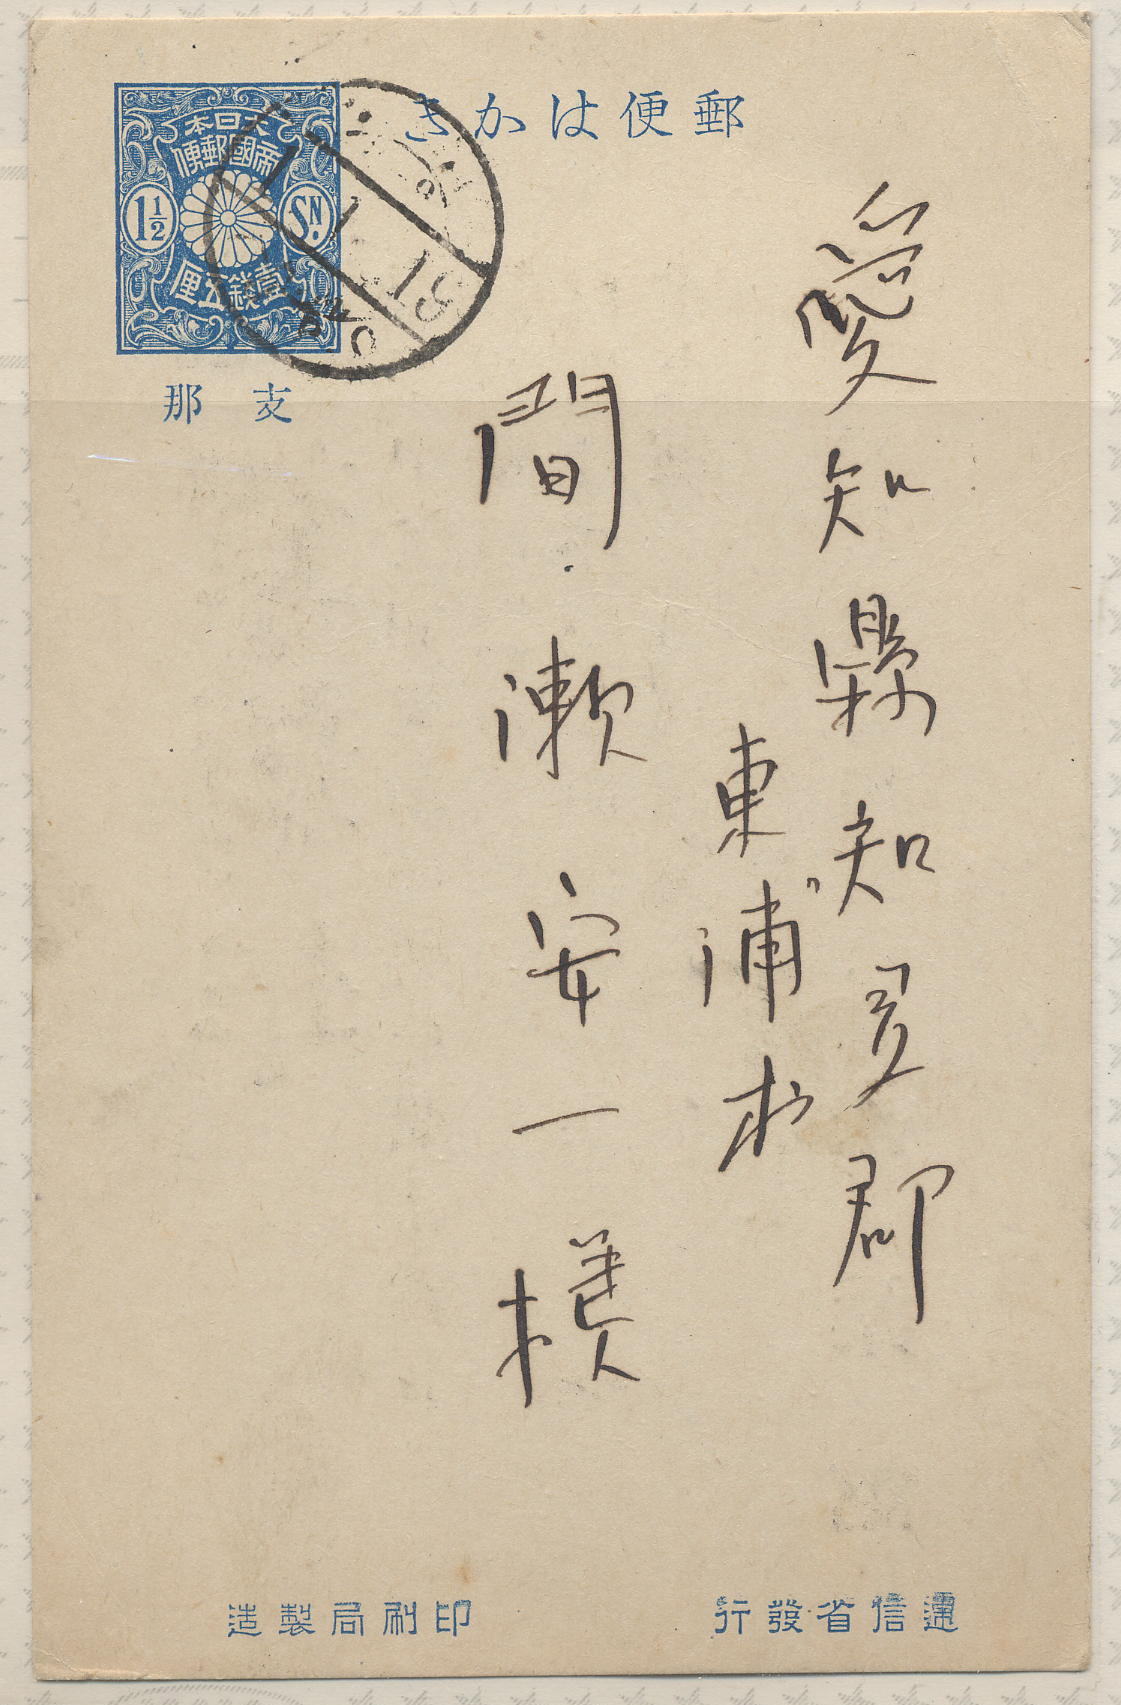 郵便はかき
大日本
帝國郵便
1½
SN.
壹錢五厘
支那
愛知縣知多郡
東浦村
間瀬安一様
遞信省發行
印刷局製造